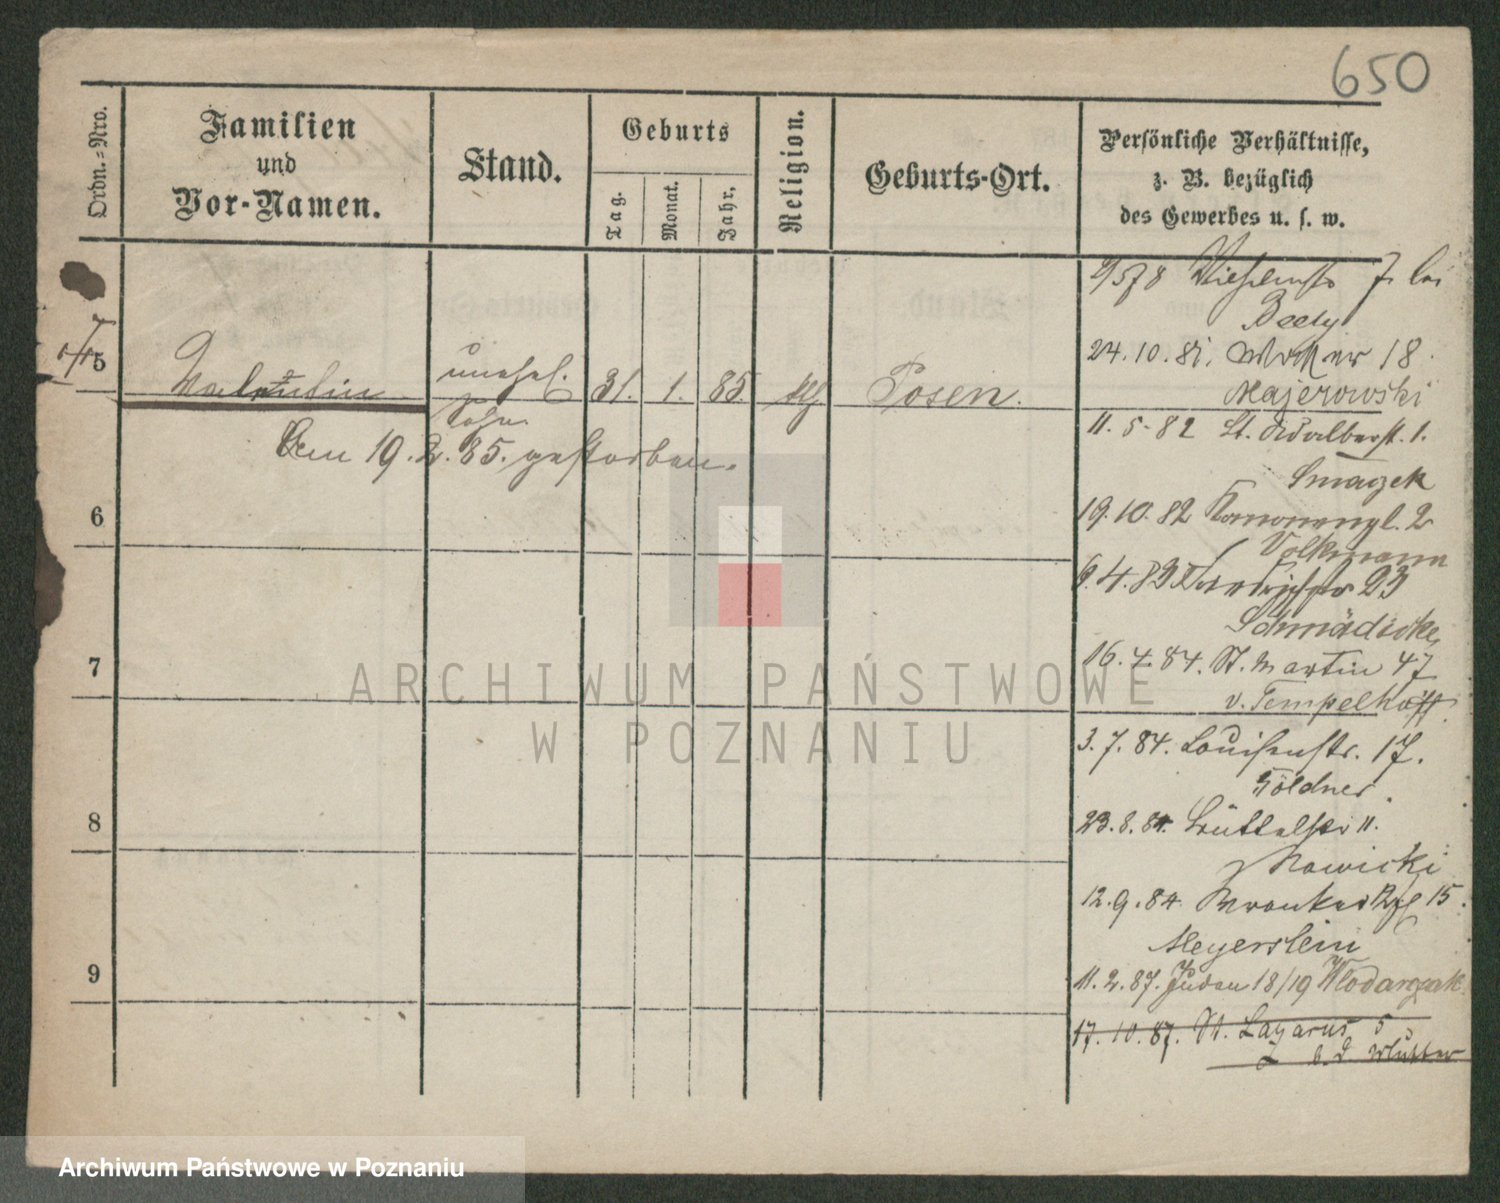 650
Ordn.-Nro.
Familien
und
Vor-Namen.
Stand.
Geburts
Tag.
Monat.
Jahr.
Religion.
Geburts-Ort.
Persönliche Verhältnisse,
z. B. bezüglich
des Gewerbes u. s. w.
5 Valentin unehel. Sohn 31. 1. 85 Posen.
Am 19. 2. 85. gestorben.
6
7
8
9
2/5 78 Wilhelmstr 7 bei
Beely
24. 10. 81. 18.
Majerowski
11. 5. 82 St. Adalbertst. 1.
Smazek
19. 10. 82 Kanonenpl. 2
Volkmann
6. 4. 83 23
Schmädicke
16. 4. 84. St. Martin 47
v. Tempelhoff.
3. 7. 84. Louisenstr. 17.
Göldner.
23. 8. 84. Büttelstr 11.
Nawicki
12. 9. 84. Wronkerstr 15.
Meyerstein
11. 2. 87. Juden 18/19 Wlodarczak
17. 10. 87. St. Lazarus 5
b. d. Mutter
ARCHIWUM PAŃSTWOWE
W POZNANIU
Archiwum Państwowe w Poznaniu